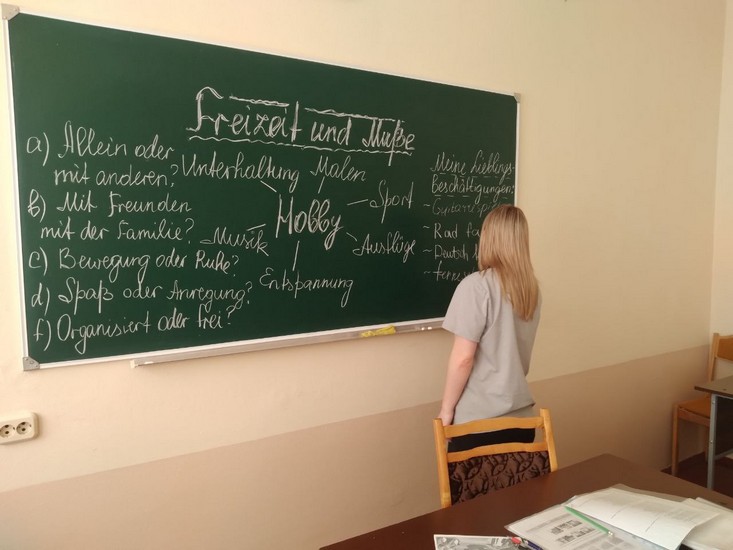 Freizeit und Muße
a) Allein oder
mit anderen?
b) Mit Freunden
mit der Familie?
c) Bewegung oder Ruhe?
d) Spaß oder Anregung?
f) Organisiert oder frei?
Unterhaltung Malen
Hobby
Sport
Musik
Ausflüge
Entspannung
Meine Lieblings-
beschäftigungen:
- Rad
- Deutsch